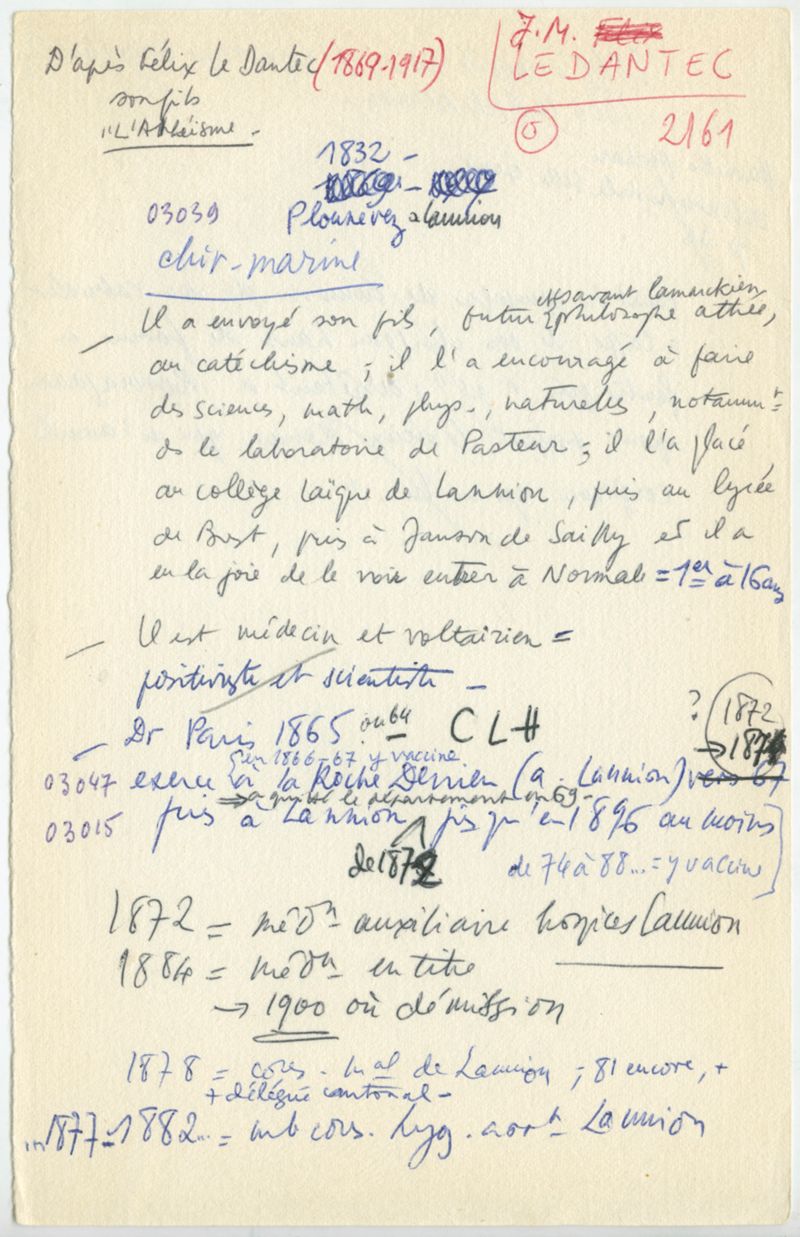 D'après Félix Le Dantec (1869-1917)
son fils
"L'Athéisme -
J. M. Félix
LE DANTEC
2161
1832 -
03039 Plounévez a Lannion
chir-marine
et savant lamarckien
— Il a envoyé son fils, futur philosophe athée,
au catéchisme ; il l'a encouragé à faire
des sciences, math, phys., naturelles, notammt
ds le laboratoire de Pasteur ; il l'a placé
au collège laïque de Lannion, puis au lycée
de Brest, puis à Janson de Sailly et il a
eu la joie de le voir entrer à Normale = 1er à 16 ans
— Il est médecin et voltairien =
positiviste et scientiste -
— Dr Paris 1865 ou 64 - CLH
? 1872
→ 187
en 1866-67 y vaccine
03047 exerce à la Roche Derrien (a. Lannion) vers 67
⇒ a quitté le département en 69 -
03015 puis à Lannion jusqu'en 1896 au moins
de 1872
de 74 à 88... = y vaccine
1872 = médn auxiliaire hospices Lannion
1884 = médn en titre
→ 1900 où démission
1878 = cons. mal de Lannion ; 81 encore, +
+ délégué cantonal -
in 1877-1882... = mb cons. hyg. arrt Lannion